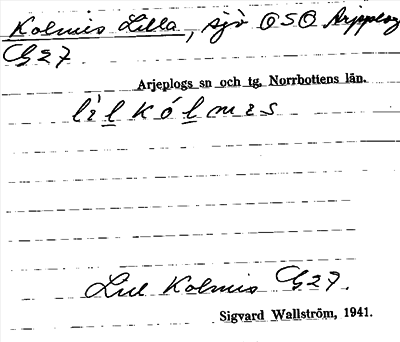 Kolmis Lilla, sjö OSO Arjeplog
G27.
Arjeplogs sn och tg, Norrbottens län.
lìl kólmes
Lill Kolmis G27.
Sigvard Wallström, 1941.